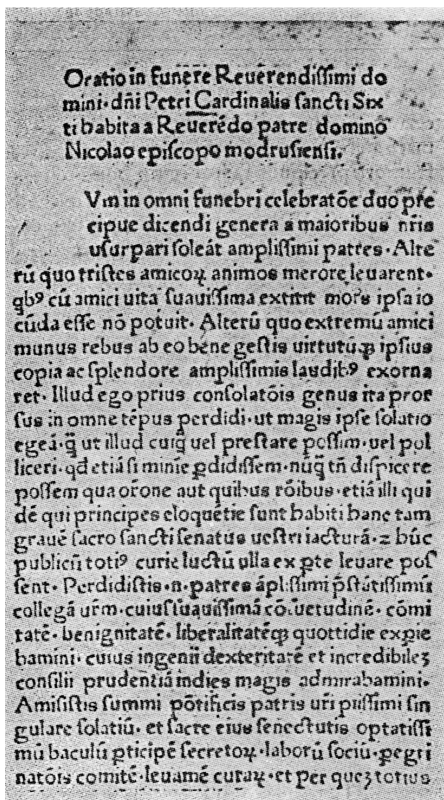 Oratio in funere Reuerendissimi do
mini·dñi Petri Cardinalis sancti Six
ti habita a Reuerẽdo patre domino
Nicolao episcopo modrusiensi.
Vm in omni funebri celebratõe duo pre
cipue dicendi genera a maioribus nr̃is
usurpari soleãt amplissimi patres·Alte
rũ quo tristes amicoꝝ animos merore leuarent·
qbꝰ cũ amici uita suauissima extitit mors ipsa io
cũda esse nõ potuit· Alterũ quo extremũ amici
munus rebus ab eo bene gestis uirtutũqꝫ ipsius
copia ac splendore amplissimis laudibꝰ exorna
ret· Illud ego prius consolatõis genus ita pror
sus in omne tẽpus perdidi·ut magis ipse solatio
egeã·q̃ ut illud cuiq̃ uel prestare possim·uel pol
liceri·qd̃ etiã si minie ꝑdidissem·nũq̃ tñ dispicere
possem qua orõne aut quibus rõibus·etiã illi qui
dẽ qui principes eloquẽtie sunt habiti hanc tam
grauẽ sacro sancti senatus uestri iacturã·⁊ hũc
publicũ totiꝰ curie luctũ ulla ex ꝑte leuare pos
sent· Perdidistis·n·patres ãplissimi p̃stãtissimũ
collegã ur̃m·cuius suauissimã cõsuetudinẽ·cõmi
tatẽ·benignitatẽ·liberalitatẽqꝫ quottidie exꝑie
bamini·cuius ingenii dexteritatẽ et incredibileꝫ
consilii prudentiã indies magis admirabamini·
Amisistis summi põtificis patris ur̃i piissimi sin
gulare solatiũ·et sacre eius senectutis optatissi
mũ baculũ ꝑticipẽ secretoꝝ·laborũ sociũ·ꝑegri
natõis comitẽ·leuamẽ curaꝝ·et per queꝫ totius